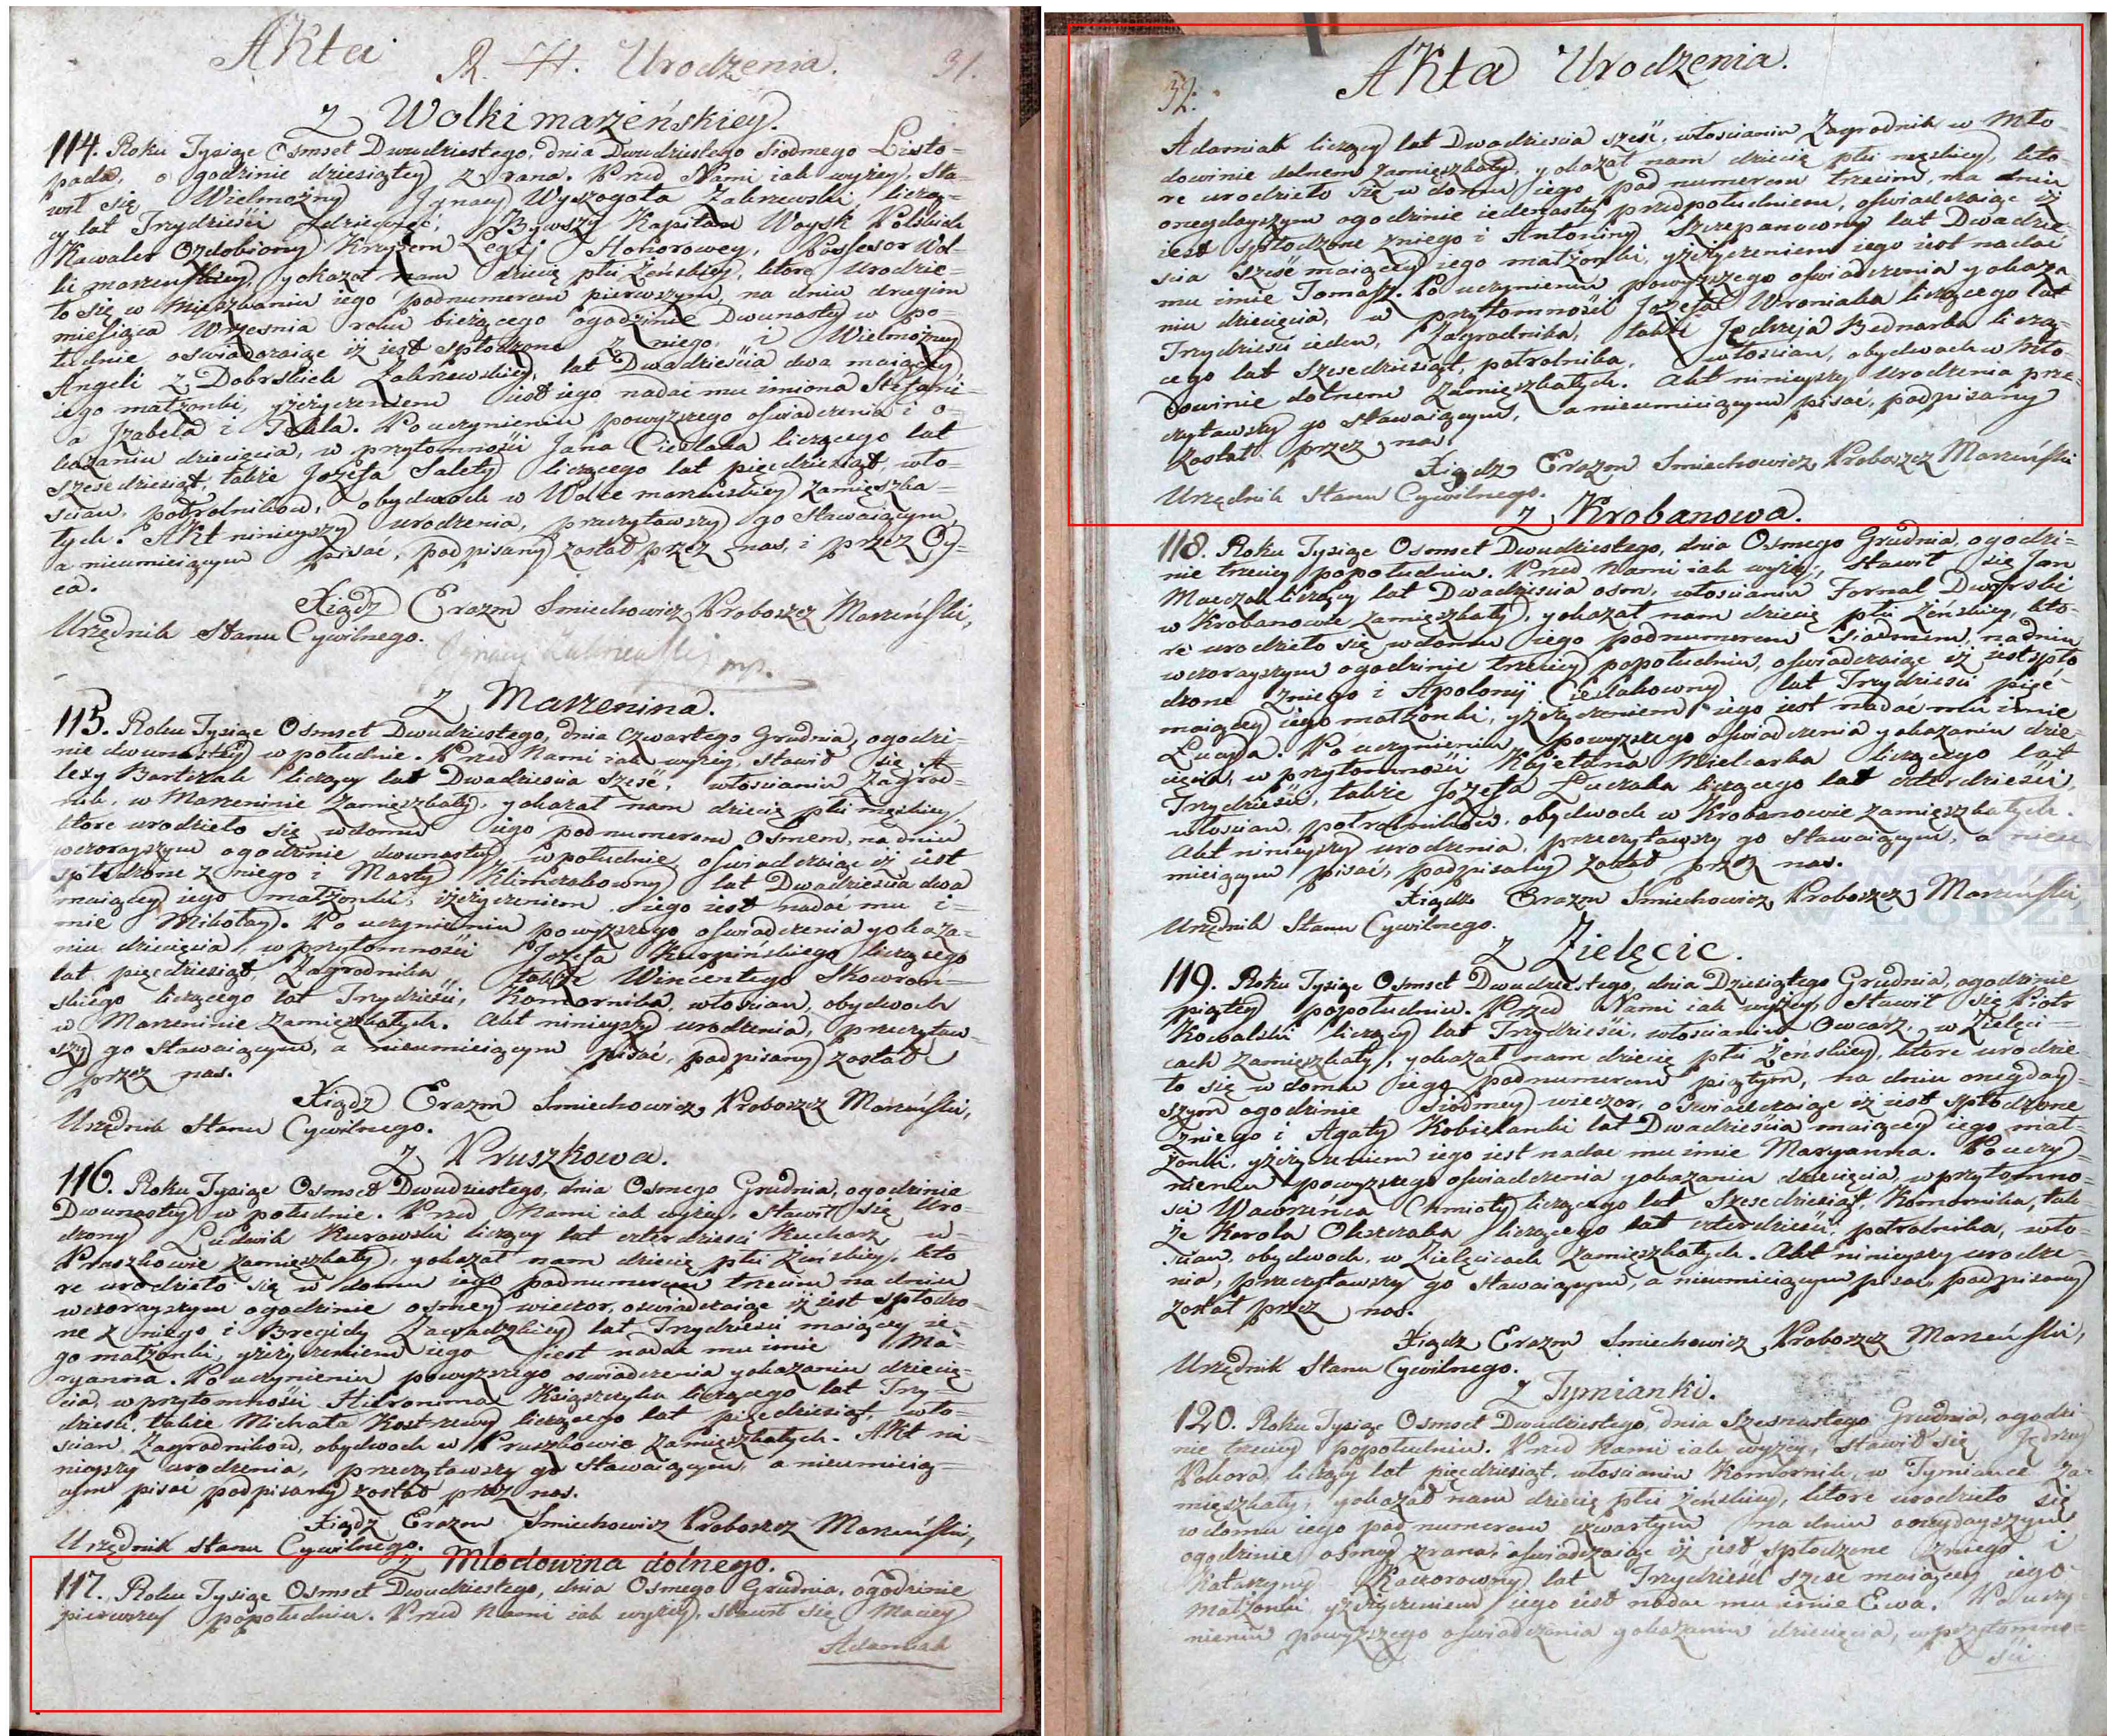 Akta
R. H. Urodzenia.
31.
z Wolki marzeńskiey.
114. Roku Tysiąc Osmset Dwudziestego, dnia Dwudziestego Siodmego Listo=
pada, o godzinie dziesiątey z rana. Przed Nami iak wyżey, Sta=
wił się Wielmożny Ignacy Wyszogota Zakrzewski, liczą=
cy lat Trzydzieści dziewięć, Bywszy Kapitan Woysk Polskich
Kawaler Ozdobiony Krzyżem Legij Honorowey, Possesor Wol=
ki marzeńskiey, y okazał nam dziecię płci Żeńskiey, które Urodzie=
ło się w Mieszkaniu iego podnumerem pierwszym, na dniu drugim
miesiąca Września roku bieżącego o godzinie Dwunastey w po=
łudnie oswiadczaiąc iż iest spłodzone z niego, i Wielmożney
Angeli z Dobrskich Zakrzewskiey, lat Dwadzieścia dwa maiącey,
iego małżonki, yżeżyczeniem iest iego nadać mu imiona Stefani=
a Izabela i Tekla. Po uczynieniu powyższego oświadczenia i o=
kazaniu dziecięcia, w przytomności Jana Cieslaka liczącego lat
szescdziesiąt, także Jozefa Salety liczącego lat pięcdziesiąt, wło=
scian, połrolnikow, obydwoch w Wolce marzeńskiey zamięszka=
łych. Akt ninieyszy urodzenia, przeczytawszy go Stawaiącym,
a nieumieiącym pisać, podpisany został przez nas, i przez Oy=
ca.
Xiądz Erazm Smiechowicz Proboszcz Marzeński,
Urzędnik Stanu Cywilnego.
Ignacy Zakrzewski mp.
z Marzenina.
115. Roku Tysiąc Osmset Dwudziestego, dnia Czwartego Grudnia, ogodzi=
nie dwunastey w południe. Przed Nami iak wyżey, stawił się A=
lexy Bartczak liczący lat Dwadziescia szesć, włościanin Zagrod=
nik, w Marzeninie zamięszkały, y okazał nam dziecię płci męskiey,
które urodzieło się wdomu iego podnumerem Osmem, na dniu
wczorayszym ogodzinie dwunastey w południe, oswiadczaiąc iż iest
spłodzone z niego i Marty Klimczakowny lat Dwadziescia dwa
maiącey iego małżonki, iżeżyczeniem iego iest nadać mu i=
mie Mikołay. Po uczynieniu powyższego oswiadczenia y okaza=
niu dziecięcia, w przytomności Jozefa Kurpińskiego liczącego
lat pięcdziesiąt, Zagrodnika, także Wincentego Skowroń=
skiego liczącego lat Trzydzieści, Komornika, włoscian, obydwoch
w Marzeninie zamięszkałych. Akt ninieyszy urodzenia, przeczytaw=
szy go Stawaiącym, a nieumieiącym pisać, podpisany został
przez nas.
Xiądz Erazm Smiechowicz Proboszcz Marzeński,
Urzędnik Stanu Cywilnego.
z Pruszkowa.
116. Roku Tysiąc Osmset Dwudziestego, dnia Osmego Grudnia, ogodzinie
Dwunastey w południe. Przed Nami iak wyżey, Stawił się Uro=
dzony Ludwik Kurowski liczący lat czterdziesci Kucharz w=
Pruszkowie zamięszkały, y okazał nam dziecię płci żeńskiey, kto=
re urodzieło się w domu iego podnumerem trzecim na dniu
wczorayszym ogodzinie osmey wieczor, oswiadczaiąc iż iest spłodzo=
ne z niego i Bregidy Zawadzkiey lat Trzydziesci maiącey ie=
go małżonki, yżeżyczeniem iego iest nadać mu imie Ma=
ryanna. Po uczynieniu powyższego oswiadczenia yokazaniu dziecię=
cia, w przytomności Hieronima Księszczyka liczącego lat Trzy=
dziesci, także Michała Kostrzewy liczącego lat pięcdziesiąt, wło=
scian, Zagrodnikow, obydwoch w Pruszkowie zamięszkałych. Akt ni=
nieyszy urodzenia, przeczytawszy go Stawaiącym, a nieumieią=
cym pisać podpisany został przez nas.
Xiądz Erazm Smiechowicz Proboszcz Marzeński,
Urzędnik Stanu Cywilnego.
z Młodowina dolnego.
117. Roku Tysiąc Osmset Dwudziestego, dnia Osmego Grudnia, ogodzinie
pierwszey popołudniu. Przed Nami iak wyżey, stawił się Maciey
Adamiak
32.
Akta Urodzenia.
Adamiak liczący lat Dwadziescia szesć, włościanin Zagrodnik w Mło=
dowinie dolnem zamięszkały, y okazał nam dziecię płci męskiey, kto=
re urodzieło się w domu iego pod numerem trzecim, na dniu
onegdayszym ogodzinie iedenastey przedpołudniem, oświadczaiąc iż
iest spłodzone zniego i Antoniny Szczepanowny lat Dwadzie=
scia szesć maiącey iego małżonki, yżeżyczeniem iego iest nadać
mu imie Tomasz. Po uczynieniu powyższego oswiadczenia y okaza=
niu dziecięcia, w przytomności Jozefa Wroniaka liczącego lat
Trzydziesci ieden, Zagrodnika, także Jędrzeja Bednarka licza=
cego lat szescdziesiąt, połrolnika, włoscian, obydwoch w Mło=
dowinie dolnem zamięszkałych. Akt ninieyszy urodzenia prze=
czytawszy go stawaiącym, a nieumieiącym pisać, podpisany
został przez nas.
Xiądz Erazm Smiechowicz Proboszcz Marzeński
Urzędnik Stanu Cywilnego.
z Krobanowa.
118. Roku Tysiąc Osmset Dwudziestego, dnia Osmego Grudnia, ogodzi=
nie trzeciey popołudniu. Przed Nami iak wyżey, stawił się Jan
Maczak liczący lat Dwadziescia osm, włoscianin Fornal Dworski
w Krobanowie zamięszkały, yokazał nam dziecię płci żeńskiey, kto=
re urodzieło się wdomu iego podnumerem Siodmem, nadniu
wczorayszym ogodzinie trzeciey popołudniu, oswiadczaiąc iż iest spło
dzone zniego i Apolonij Cieslakowny lat Trzydziesci pięć
maiącey iego małżonki, yżeżyczeniem iego iest nadać mu imie
Łucya. Po uczynieniu powyższego oswiadczenia yokazaniu dzie=
cięcia, w przytomności Kajetana Mielcarka liczącego lat
Trzydziesci, także Jozefa Łuczaka liczącego lat czterdziesci,
włoscian, połrolnikow, obydwoch w Krobanowie zamięszkałych.
Akt ninieyszy urodzenia, przeczytawszy go stawaiącym, a nieu=
mieiącym pisać, podpisany został przez nas.
Xiądz Erazm Smiechowicz Proboszcz Marzeński
Urzędnik Stanu Cywilnego.
z Zielęcic.
119. Roku Tysiąc Osmset Dwudziestego, dnia Dziesiątego Grudnia, ogodzinie
piątey popołudniu. Przed Nami iak wyżey, Stawił się Piotr
Kowalski liczący lat Trzydzieści, włościanin Owczarz, w Zielęci=
cach zamięszkały, yokazał nam dziecię płci Żeńskiey, które urodzie=
ło się w domu iego podnumerem piątym, na dniu onegday=
szym ogodzinie siodmey wieczor, oswiadczaiąc iż iest spłodzone
zniego i Agaty Kobielanki lat Dwadzieścia maiącey iego mał=
żonki, yżeżyczeniem iego iest nadać mu imie Maryanna. Po uczy=
nieniu powyższego oswiadczenia yokazaniu dziecięcia, w przytomno=
sci Wawrzeńca Chmioły liczącego lat szescdziesiąt, Komornika, tak=
że Karola Olszczaka liczącego lat czterdzieści, połrolnika, wło=
scian, obydwoch, w Zielęcicach zamięszkałych. Akt ninieyszy urodze=
nia, przeczytawszy go stawaiącym, a nieumieiącym pisać, podpisany
został przez nas.
Xiądz Erazm Smiechowicz Proboszcz Marzeński,
Urzędnik Stanu Cywilnego.
z Tymianki.
120. Roku Tysiąc Osmset Dwudziestego, dnia Szesnastego Grudnia, ogodzi
nie trzeciey popołudniu. Przed Nami iak wyżey, Stawił się Jędrzey
Pokora, liczący lat pięcdziesiąt, włoscianin Komornik, w Tymiance za=
mięszkały, yokazał nam dziecię płci żeńskiey, które urodzieło się
w domu iego pod numerem czwartym na dniu onegdayszym
ogodzinie osmey zrana, oswiadczaiąc iż iest spłodzone zniego i
Katarzyny Kaczorowny lat Trzydzieści szesć maiącey iego
małżonki yżeżyczeniem iego iest nadać mu imie Ewa. Po uczy=
nieniu powyższego oswiadczenia yokazaniu dziecięcia, w przytomno=
ści